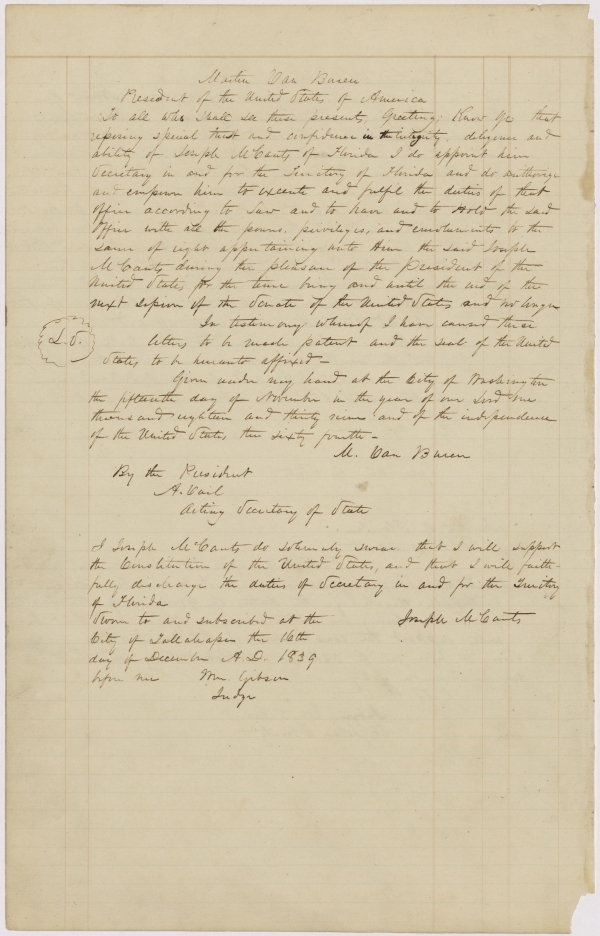 Martin Van Buren
President of the United States of America
To all who shall see these presents, Greeting; Know Ye that
reposing special trust and confidence in the integrity, diligence and
ability of Joseph McCants of Florida I do appoint him
Secretary in and for the Territory of Florida and do authorize
and empower him to execute and fulfil the duties of that
office according to Law and to have and to Hold the said
Office with all the powers, privileges, and emoluments to the
same of right appertaining unto Him the said Joseph
McCants during the pleasure of the President of the
United States for the time being and until the end of the
next session of the Senate of the United States and no longer
In testimony whereof I have caused these
L.S.
letters to be made patent and the seal of the United
States to be hereunto affixed -
Given under my hand at the City of Washington
the fifteenth day of November in the year of our Lord one
thousand eighteen and thirty nine and of the independence
of the United States the sixty fourth -
M. Van Buren
By the President
A. Vail
Acting Secretary of State
I Joseph McCants do solemnly swear that I will support
the Constitution of the United States, and that I will faith-
fully discharge the duties of Secretary in and for the Territory
of Florida
Sworn to and subscribed at the Joseph McCants
City of Tallahassee the 16th
day of December A.D. 1839
before me Wm. Gibson
Judge